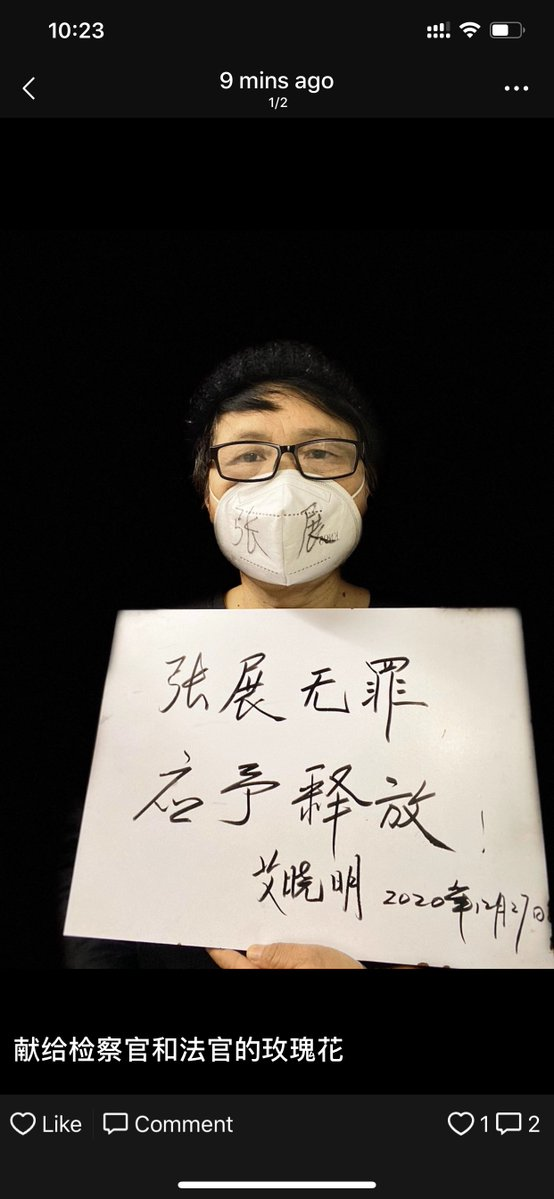 10:23
9 mins ago
1/2
张展
张展无罪
应予释放！
艾晓明 2020年12月27日
献给检察官和法官的玫瑰花
Like
Comment
1
2